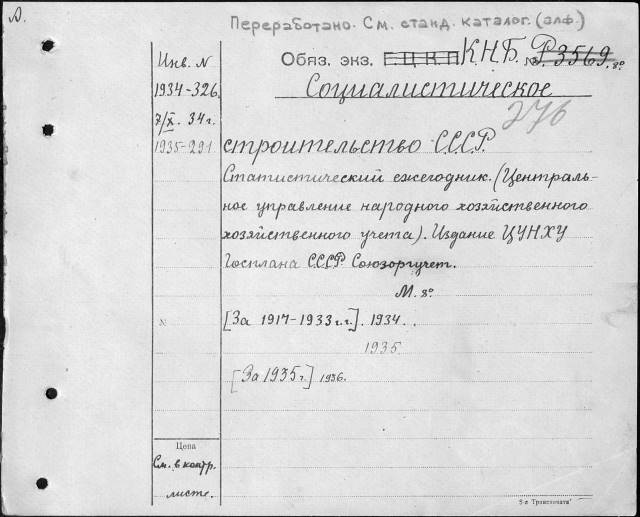 D.
Переработано. См. станд. каталог. (алф.)
Инв. N
Обяз. экз. Г.Ц.К.П К.Н.Б. № Р3569. 8º
1934-326
Социалистическое
7/X. 34г.
276
1935-291
строительство С.С.С.Р.
Статистический ежегодник. (Централь-
ное управление народного хозяйственного
хозяйственного учета). Издание ЦУНХУ
Госплана С.С.С.Р. Союзоргучет.
М. 8º
N
[За 1917-1933 г.г.]. 1934.
1935
[За 1935 г.] 1936.
Цена
См. в контр.
листе.
5-я Транспечати